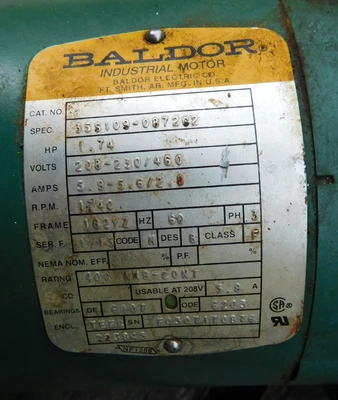 BALDOR
INDUSTRIAL MOTOR
BALDOR ELECTRIC CO.
FT. SMITH, AR. MFG. IN U.S.A.
CAT. NO.
SPEC. 35S109-0872G2
HP 1.74
VOLTS 208-230/460
AMPS 5.9-5.6/2.8
R.P.M.
FRAME HZ 60 PH 3
SER. F. 1.15 CODE K DES B CLASS F
NEMA NOM. EFF. % P.F. %
RATING 40C AMB-CONT
CC USABLE AT 208V 5.9 A
BEARINGS DE ODE 6203
ENCL. SN
SA
NP1256